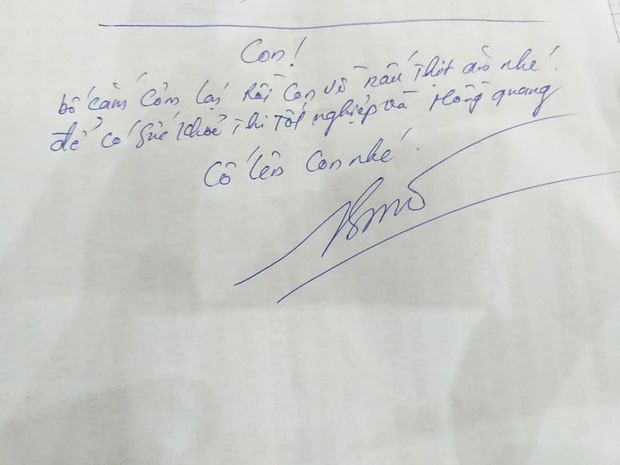 Con!
bố cắm cơm lại rồi con về nấu thịt ăn nhé.
để có sức khoẻ thi tốt nghiệp và Hồng quang
Cố lên con nhé.